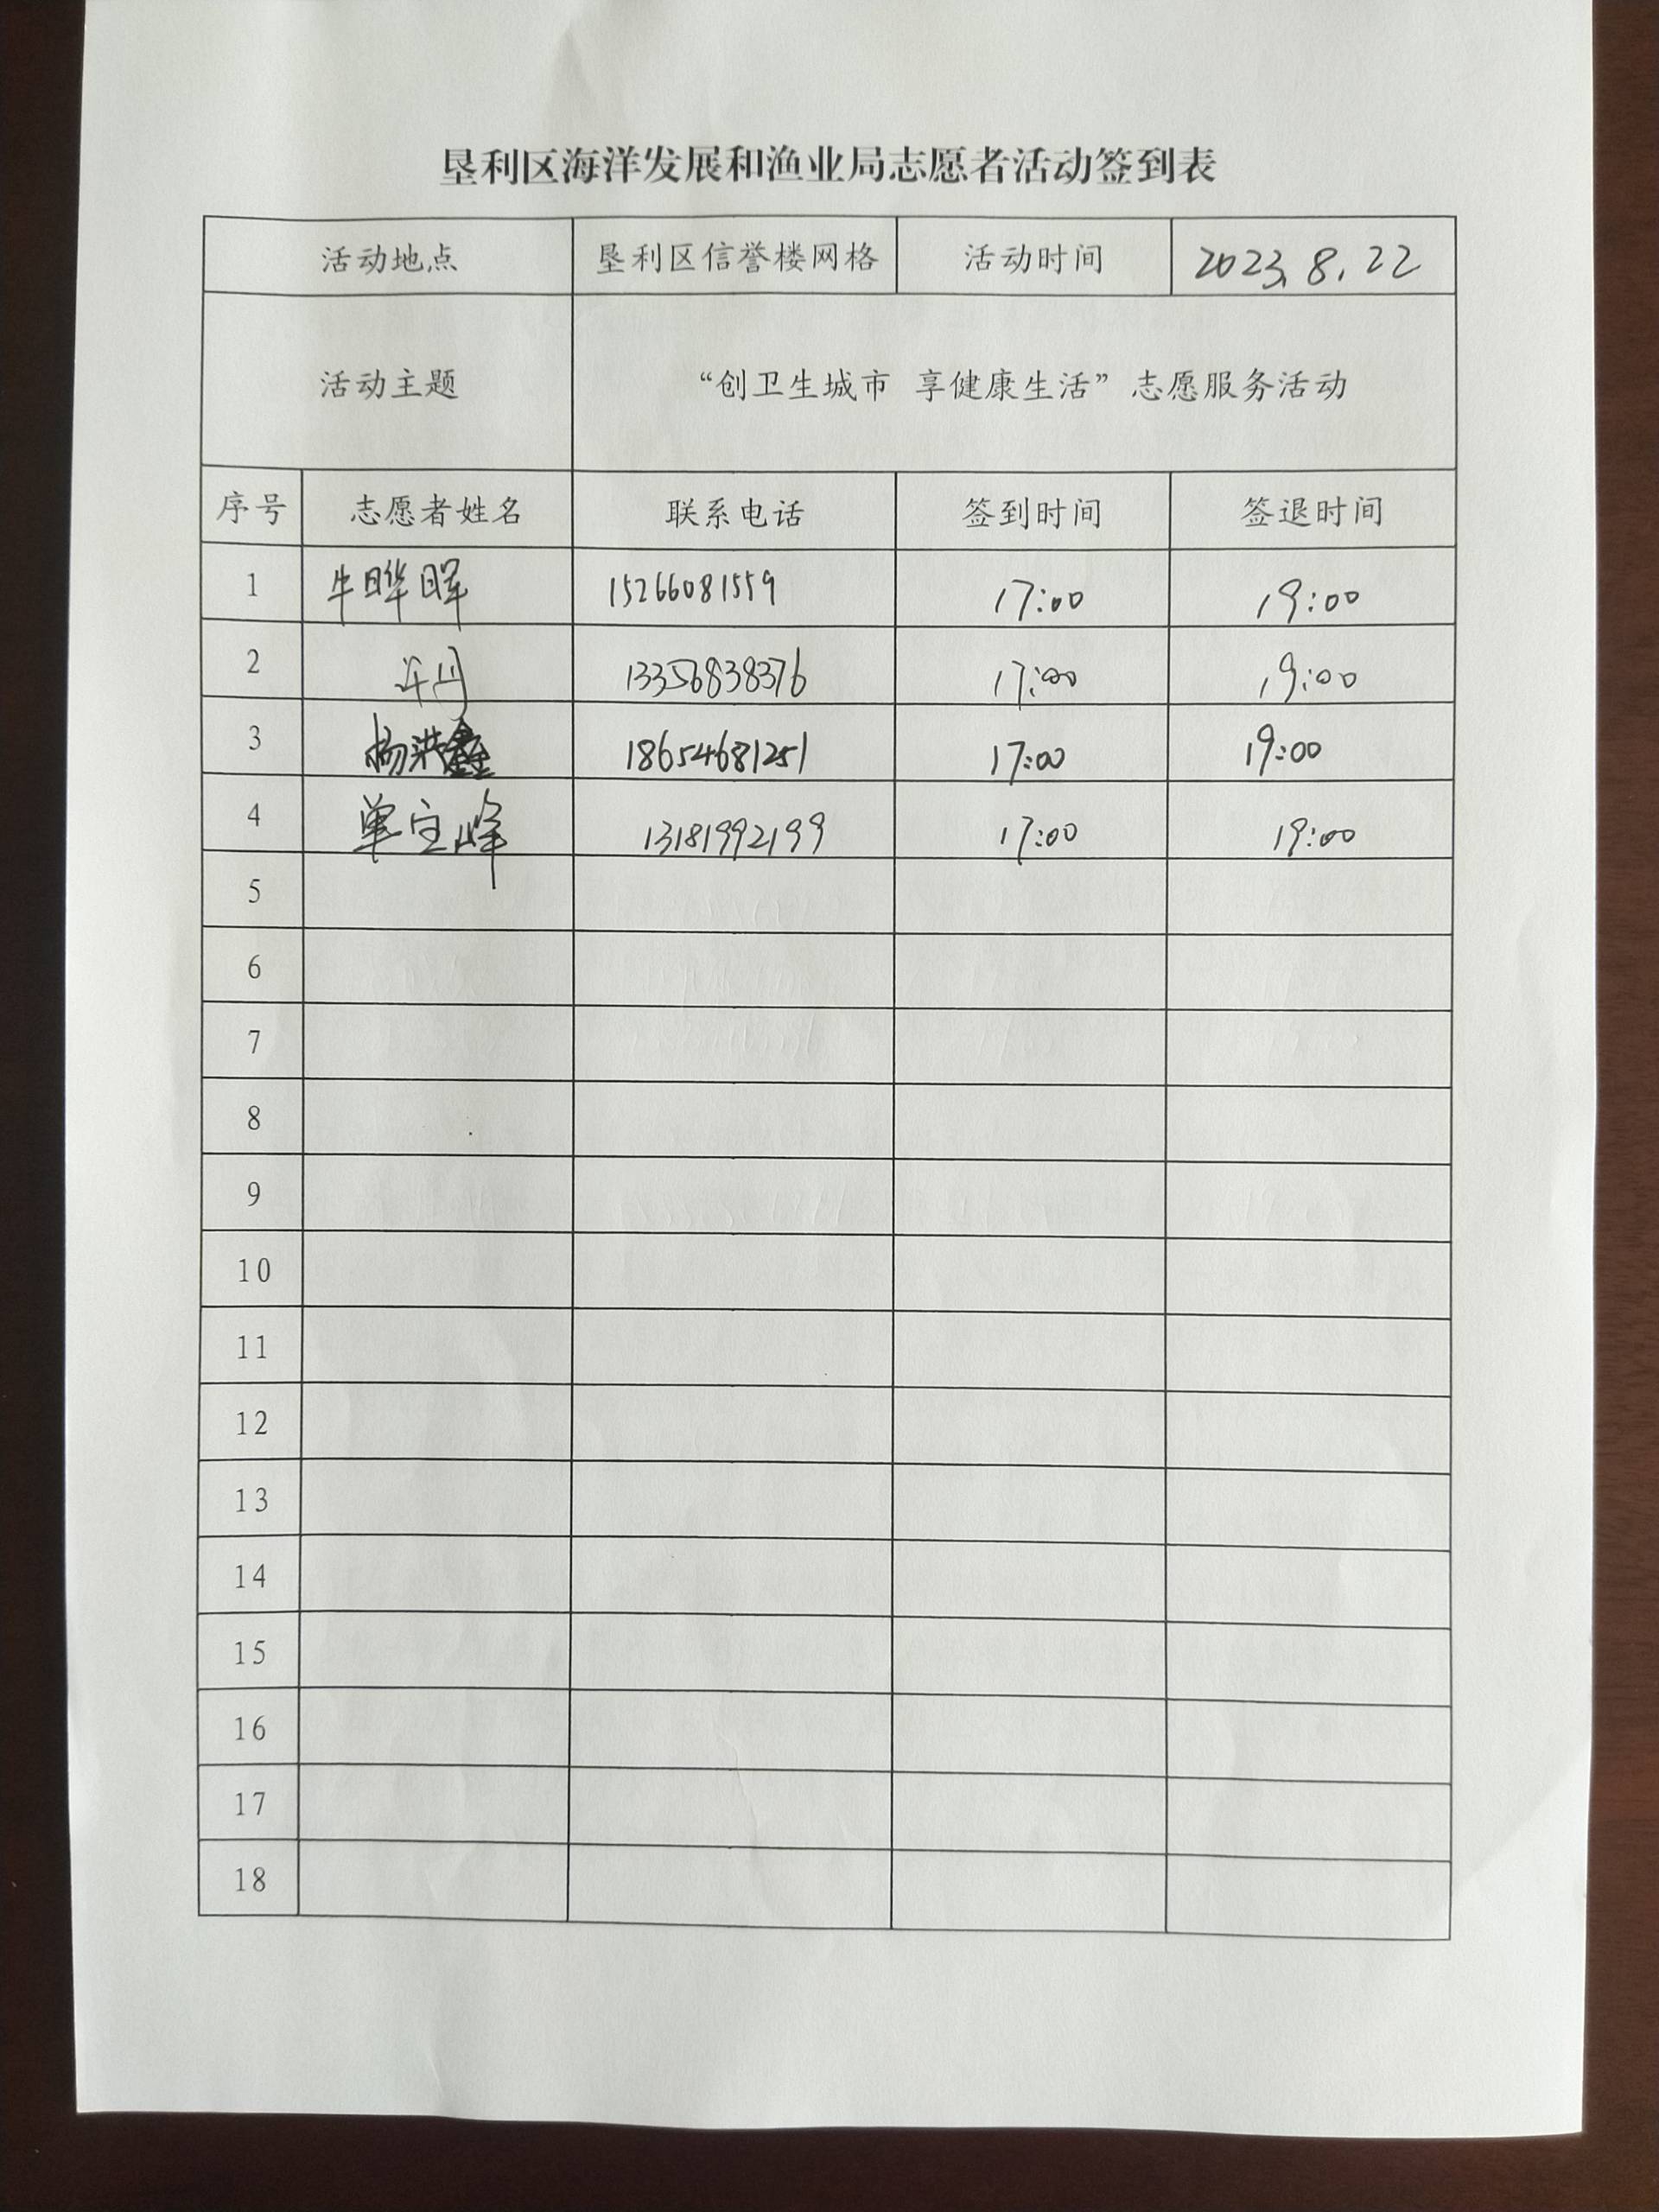 垦利区海洋发展和渔业局志愿者活动签到表
活动地点 垦利区信誉楼网格 活动时间 2023.8.22
活动主题 “创卫生城市 享健康生活”志愿服务活动
序号 志愿者姓名 联系电话 签到时间 签退时间
1 牛晔晖 15266081559 17:00 19:00
2 许冉 13356838376 17:00 19:00
3 杨洪鑫 18654681251 17:00 19:00
4 单宝峰 13181992199 17:00 19:00
5
6
7
8
9
10
11
12
13
14
15
16
17
18